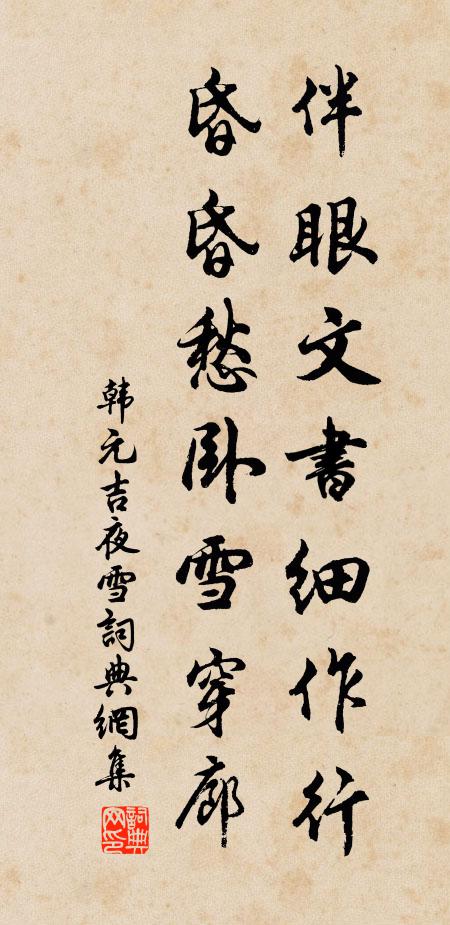 伴眼文書細作行
昏昏愁卧雪穿廊
韩元吉夜雪詞典網集
詞典網印